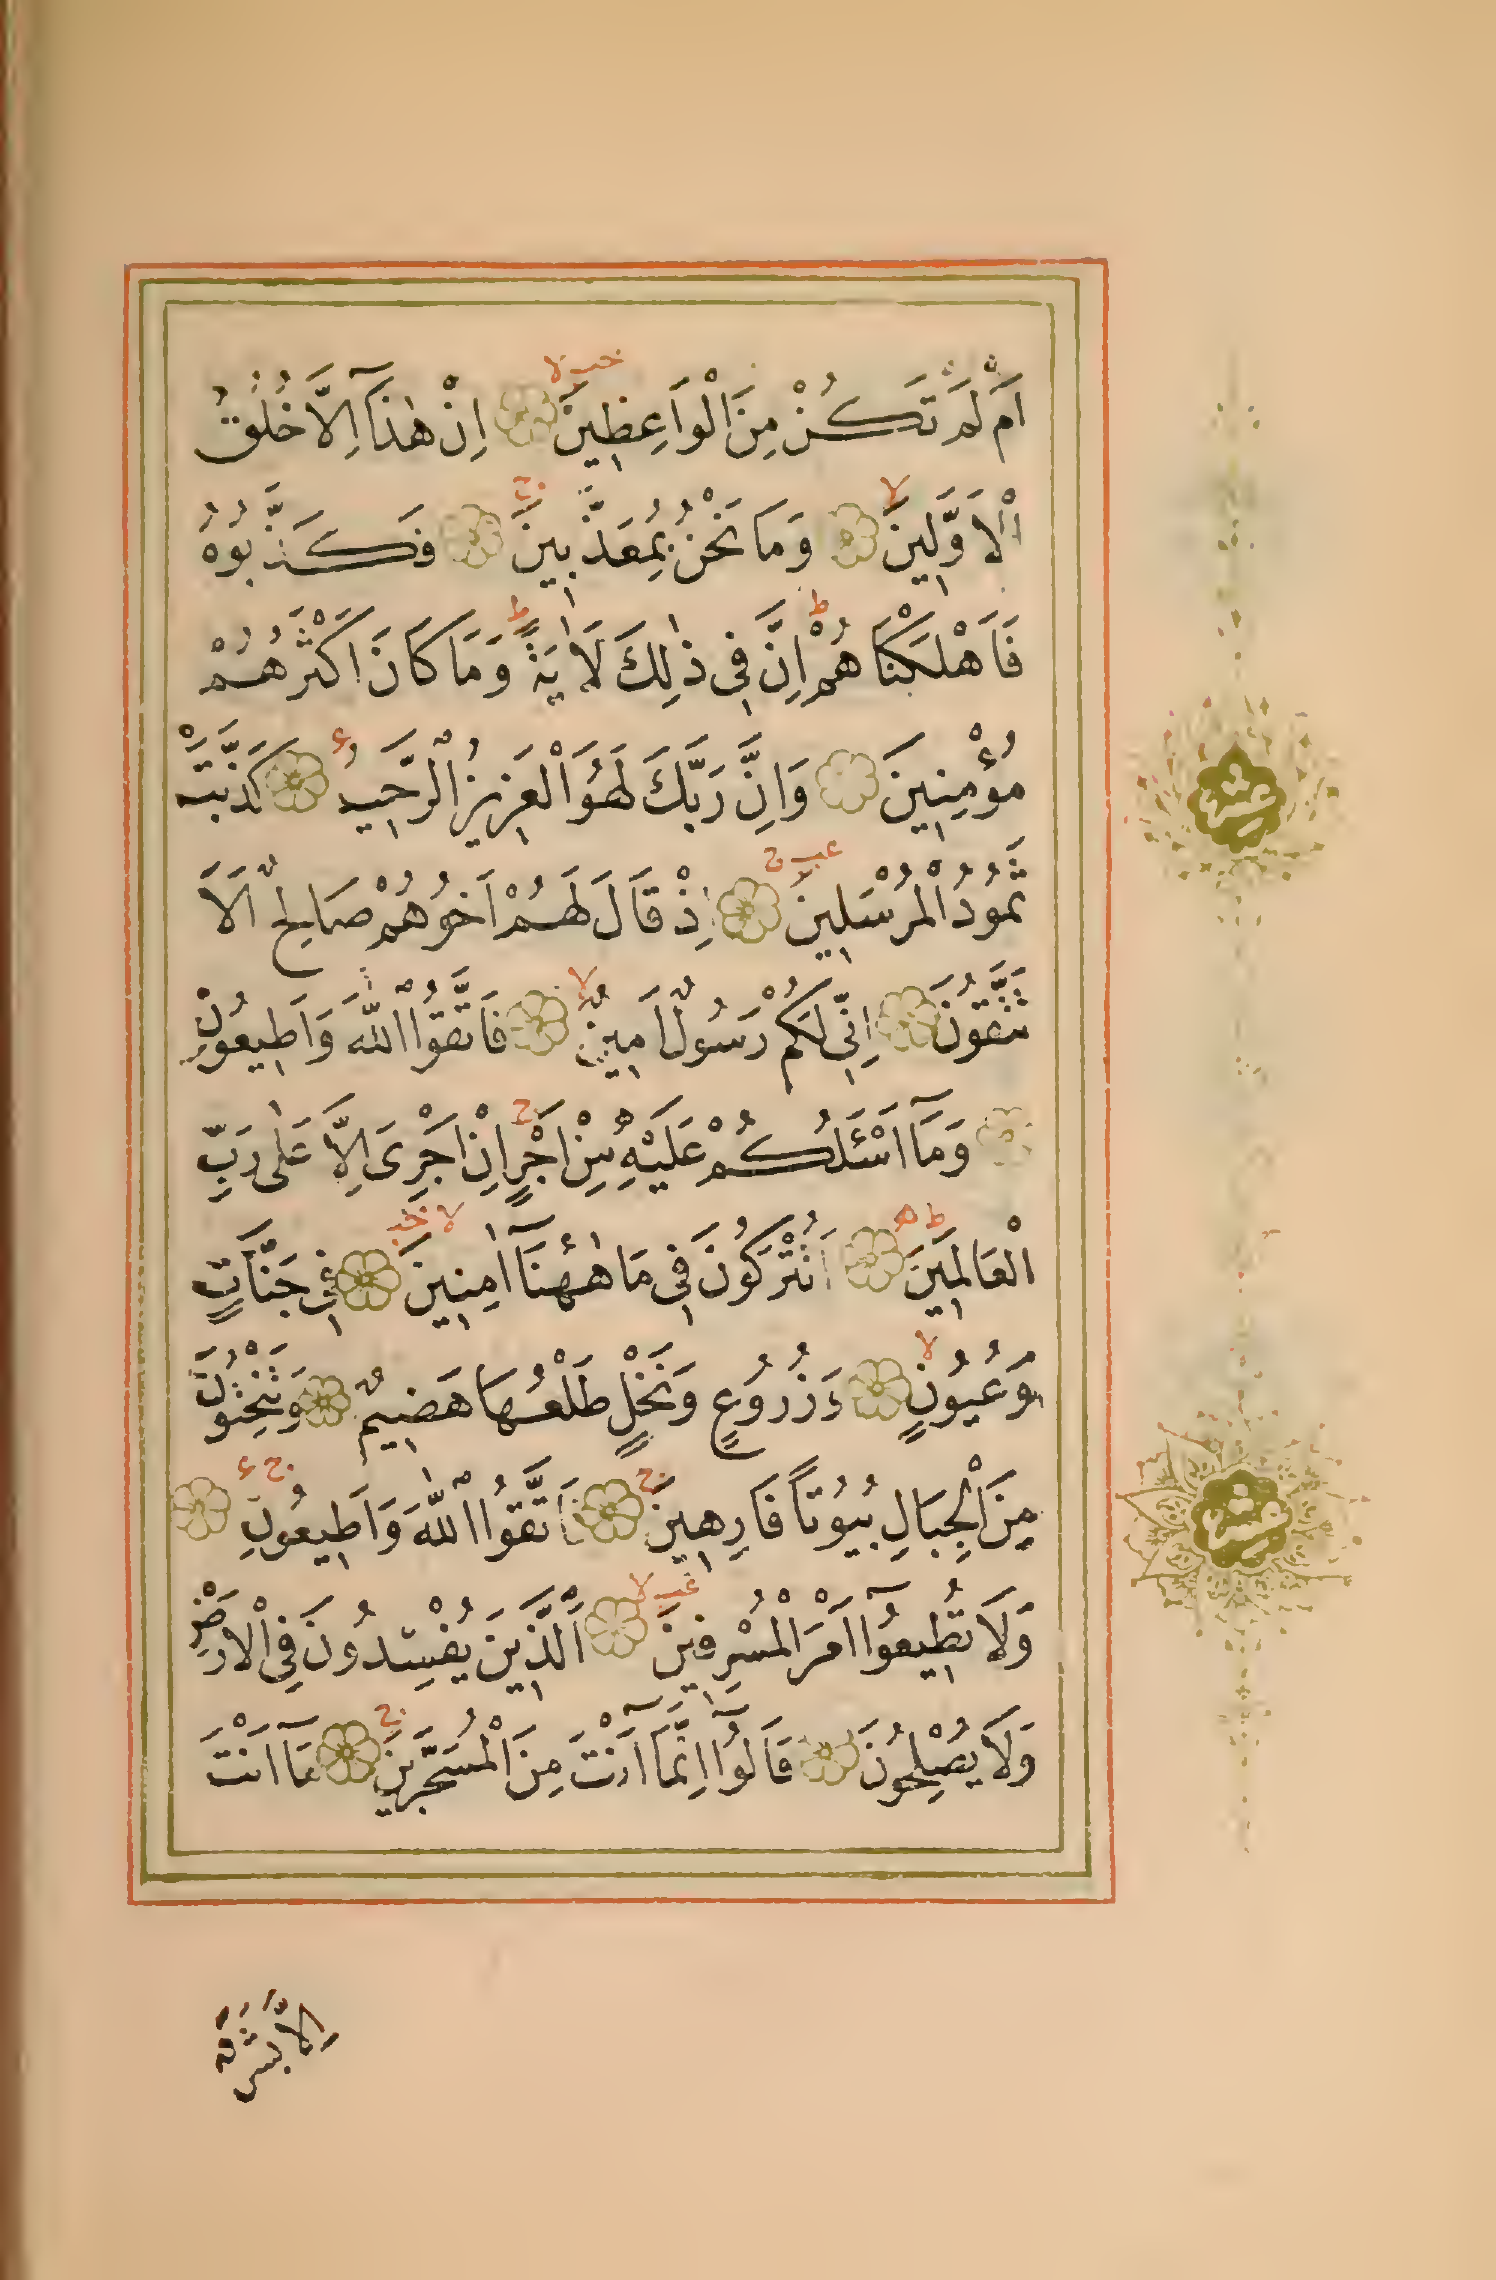 اَمْ لَمْ تَكُنْ مِنَ الْوَاعِظِينَ اِنْ هٰذَآ اِلَّا خُلُقُ
الْاَوَّلِينَ وَمَا نَحْنُ بِمُعَذَّبِينَ فَكَذَّبُوهُ
فَاَهْلَكْنَاهُمْ اِنَّ فِي ذٰلِكَ لَاٰيَةً وَمَا كَانَ اَكْثَرُهُمْ
مُؤْمِنِينَ وَاِنَّ رَبَّكَ لَهُوَ الْعَزِيزُ الرَّحِيمُ كَذَّبَتْ
ثَمُودُ الْمُرْسَلِينَ اِذْ قَالَ لَهُمْ اَخُوهُمْ صَالِحٌ اَلَا
تَتَّقُونَ اِنِّي لَكُمْ رَسُولٌ اَمِينٌ فَاتَّقُوا اللّٰهَ وَاَطِيعُونِ
وَمَآ اَسْئَلُكُمْ عَلَيْهِ مِنْ اَجْرٍ اِنْ اَجْرِيَ اِلَّا عَلٰى رَبِّ
الْعَالَمِينَ اَتُتْرَكُونَ فِي مَا هٰهُنَآ اٰمِنِينَ فِي جَنَّاتٍ
وَعُيُونٍ وَزُرُوعٍ وَنَخْلٍ طَلْعُهَا هَضِيمٌ وَتَنْحِتُونَ
مِنَ الْجِبَالِ بُيُوتًا فَارِهِينَ فَاتَّقُوا اللّٰهَ وَاَطِيعُونِ
وَلَا تُطِيعُوآ اَمْرَ الْمُسْرِفِينَ اَلَّذِينَ يُفْسِدُونَ فِي الْاَرْضِ
وَلَا يُصْلِحُونَ قَالُوآ اِنَّمَآ اَنْتَ مِنَ الْمُسَحَّرِينَ مَآ اَنْتَ
اِلَّا بَشَرٌ